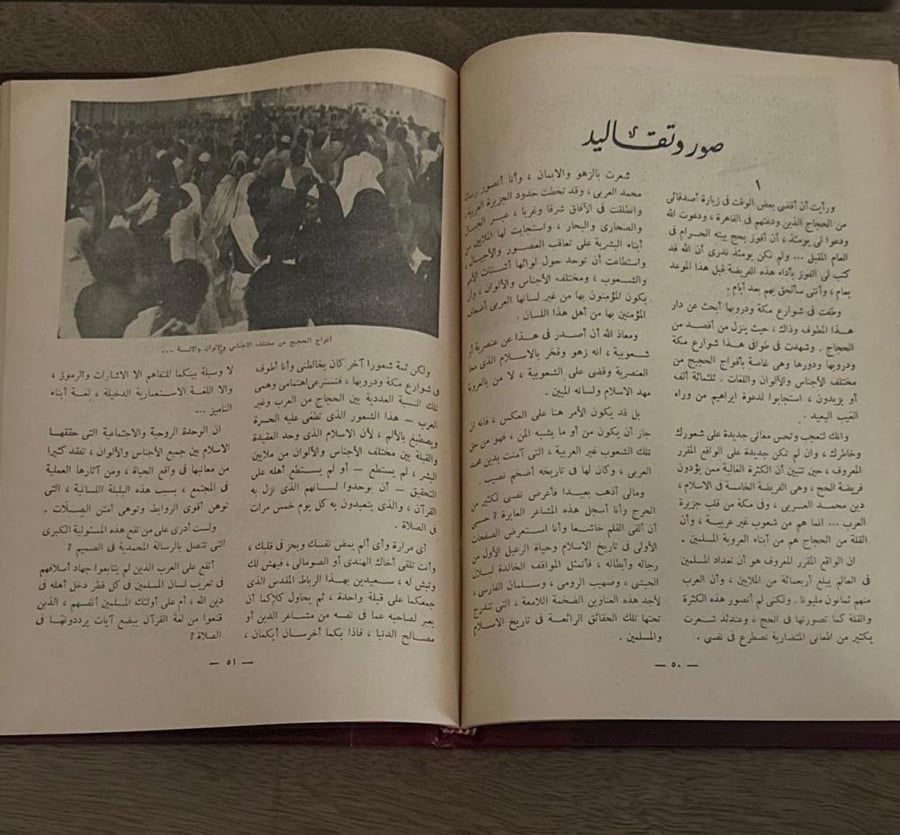 صور وتقاليد
١
ورأيت أن أقضى بعض الوقت فى زيارة أصدقائى
من الحجاج الذين ودعتهم فى القاهرة ، ودعوت الله
ودعوا لى يومئذ ، أن أفوز بحج بيته الحرام فى
العام المقبل ... ولم نكن يومئذ ندرى أن الله قد
كتب لى الفوز بأداء هذه الفريضة قبل هذا الموعد
بعام ، وأننى سألحق بهم بعد أيام .
وطفت فى شوارع مكة ودروبها أبحث عن دار
هذا المطوف وذاك ، حيث ينزل من أقصد من
الحجاج . وشهدت فى طوافى هذا شوارع مكة
ودروبها ودورها وهى غاصة بأفواج الحجيج من
مختلف الأجناس والألوان واللغات . ثلثمائة ألف
أو يزيدون ، استجابوا لدعوة ابراهيم من وراء
الغيب البعيد .
وانك لتعجب وتحس معانى جديدة على شعورك
وخاطرك ، وان لم تكن جديدة على الواقع المقرر
المعروف ، حين تتبين أن الكثرة الغالبة ممن يؤدون
فريضة الحج ، وهى الفريضة الخامسة فى الاسلام ،
دين محمد العربى ، وفى مكة من قلب جزيرة
العرب ... انما هم من شعوب غير عربية ، وأن
القلة من الحجاج هم من أبناء العروبة المسلمين .
ان الواقع المقرر المعروف هو أن تعداد المسلمين
فى العالم يبلغ أربعمائة من الملايين ، وأن العرب
منهم ثمانون مليونا . ولكنى لم أتصور هذه الكثرة
والقلة كما تصورتها فى الحج ، وعندئذ شعرت
بكثير من المعانى المتضاربة تصطرع فى نفسى .
شعرت بالزهو والايمان ، وأنا أتصور رسالة
محمد العربى ، وقد تخطت حدود الجزيرة العربية
وانطلقت فى الآفاق شرقا وغربا ، عبر الجبال
والصحارى والبحار ، واستجابت لها الملايين من
أبناء البشرية على تعاقب العصور والأجيال ،
واستطاعت أن توحد حول لوائها أشتات الأمم
والشعوب ، ومختلف الأجناس والألوان ، وأن
يكون المؤمنون بها من غير لسانها العربى أضعاف
المؤمنين بها من أهل هذا اللسان .
ومعاذ الله أن أصدر فى هذا عن عنصرية أو
شعوبية ، انه زهو وفخر بالاسلام الذى محا
العنصرية وقضى على الشعوبية ، لا من بالعروبة
مهد الاسلام ولسانه المبين .
بل قد يكون الأمر هنا على العكس ، فانه ان
جاز أن يكون من أو ما يشبه المن ، فهو من حق
تلك الشعوب غير العربية ، التى آمنت بدين محمد
العربى ، وكان لها فى تاريخه أضخم نصيب .
ومالى أذهب بعيدا فأعرض نفسى لكثير من
الحرج وأنا أسجل هذه المشاعر العابرة ؟ حسبى
أن ألقى القلم خاشعا وأنا استعرض الصفحات
الأولى فى تاريخ الاسلام وحياة الرعيل الأول من
رجاله وأبطاله ، فأتمثل المواقف الخالدة لبلال
الحبشى ، وصهيب الرومى ، وسلمان الفارسى ،
لأجد هذه العناوين الضخمة اللامعة ، التى تندرج
تحتها تلك الحقائق الرائعة فى تاريخ الاسلام
والمسلمين .
— ٥٠ —
أفواج الحجيج من مختلف الأجناس والألوان والألسنة ...
ولكن ثمة شعورا آخر كان يخالطنى وأنا أطوف
فى شوارع مكة ودروبها ، فتسترعى اهتمامى وهمى
تلك النسبة العددية بين الحجاج من العرب وغير
العرب — هذا الشعور الذى تطغى عليه الحسرة
ويصطبغ بالألم ، لأن الاسلام الذى وحد العقيدة
والقبلة بين مختلف الأجناس والألوان من ملايين
البشر ، لم يستطع — أو لم يستطع أهله على
التحقيق — أن يوحدوا لسانهم الذى نزل به
القرآن ، والذى يتعبدون به كل يوم خمس مرات
فى الصلاة .
أى مرارة وأى ألم يمض نفسك ويحز فى قلبك ،
وأنت تلقى أخاك الهندى أو الصومالى ، فيهش لك
وتهش له ، سعيدين بهذا الرباط المقدس الذى
جمعكما على قبلة واحدة ، ثم يحاول كلاكما أن
يعبر لصاحبه عما فى نفسه من مشاعر الدين أو
مصالح الدنيا ، فاذا بكما أخرسان أبكمان ،
لا وسيلة بينكما للتفاهم الا الاشارات والرموز ،
والا اللغة الاستعمارية الدخيلة ، لغة أبناء
التاميز ...
ان الوحدة الروحية والاجتماعية التى حققها
الاسلام بين جميع الأجناس والألوان ، تفقد كثيرا
من معانيها فى واقع الحياة ، ومن آثارها العملية
فى المجتمع ، بسبب هذه البلبلة اللسانية ، التى
توهن أقوى الروابط وتوهى أمتن الصلات .
ولست أدرى على من تقع هذه المسئولية الكبرى
التى تتصل بالرسالة المحمدية فى الصميم ؟
أتقع على العرب الذين لم يتابعوا جهاد أسلافهم
فى تعريب لسان المسلمين فى كل قطر دخل أهله فى
دين الله ، أم على أولئك المسلمين أنفسهم ، الذين
قنعوا من لغة القرآن ببضع آيات يرددونها فى
الصلاة ؟
— ٥١ —